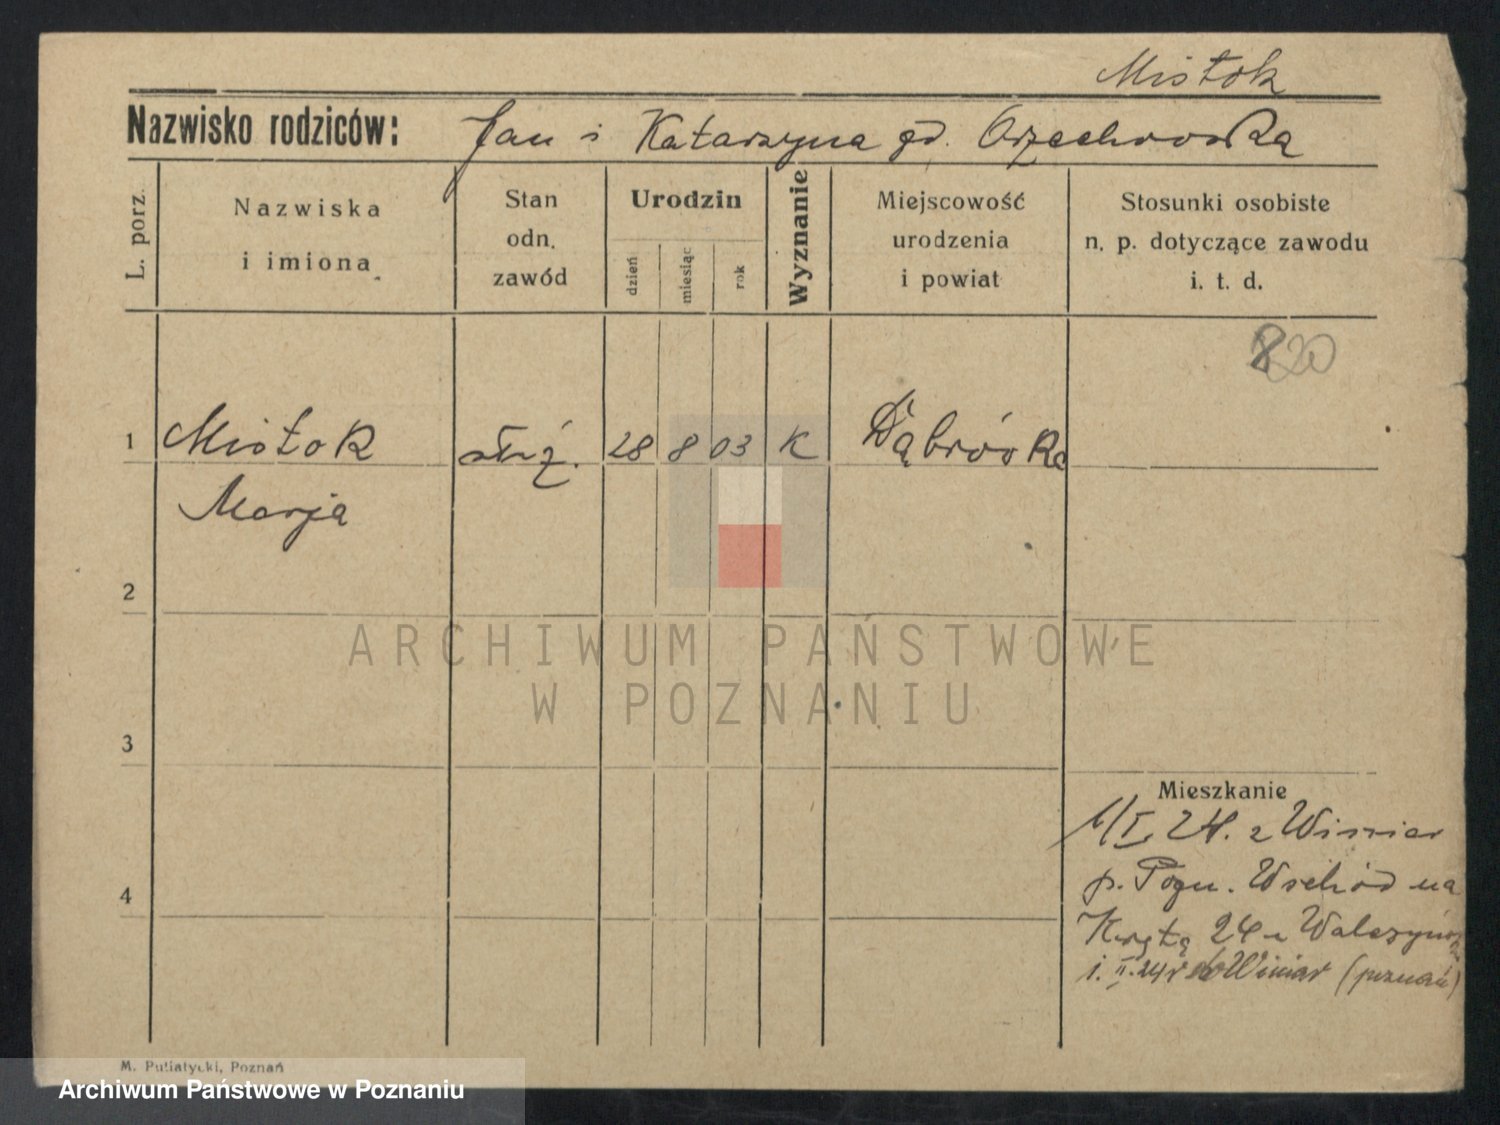 Mistok
Nazwisko rodziców: Jan i Katarzyna gd. Orzechowska
L. porz.
Nazwiska
i imiona
Stan
odn.
zawód
Urodzin
dzień
miesiąc
rok
Wyznanie
Miejscowość
urodzenia
i powiat
Stosunki osobiste
n. p. dotyczące zawodu
i. t. d.
820
1 Mistok służ. 28 8 03 K Dąbrówka
Marja
2
3
4
Mieszkanie
1/I. 24. z Winiar
p. Pozn. Wschód na
Krętą 24 u
1. II. 24 r do Winiar (poznań)
M. Putiatycki, Poznań
ARCHIWUM PAŃSTWOWE
W POZNANIU
Archiwum Państwowe w Poznaniu